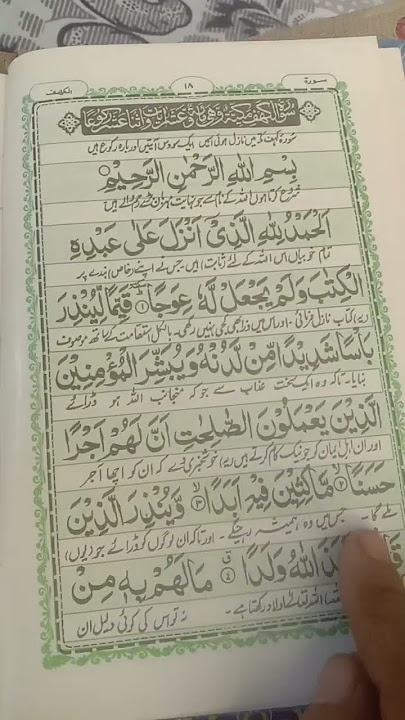 سورة ١٨ الكهف
سورۃ الكهف مكية وهي مائة وعشر آيات واثنا عشر ركوعا
سورۂ کہف مکہ میں نازل ہوئی اس میں ایک سو دس آیتیں اور بارہ رکوع ہیں
بِسْمِ اللهِ الرَّحْمٰنِ الرَّحِيْمِ
شروع کرتا ہوں اللہ کے نام سے جو نہایت مہربان بڑے رحم والے ہیں
اَلْحَمْدُ لِلّٰهِ الَّذِيْٓ اَنْزَلَ عَلٰى عَبْدِهِ
تمام خوبیاں اس اللہ کے لئے (ثابت) ہیں جس نے اپنے (خاص) بندے پر
الْكِتٰبَ وَلَمْ يَجْعَلْ لَّهٗ عِوَجًا ١ قَيِّمًا لِّيُنْذِرَ
(یہ) کتاب نازل فرمائی اور اس میں ذرا بھی کجی نہیں رکھی۔ بالکل استقامت کے ساتھ موصوف
بَاْسًا شَدِيْدًا مِّنْ لَّدُنْهُ وَيُبَشِّرَ الْمُؤْمِنِيْنَ
بنایا۔ تاکہ وہ ایک سخت عذاب سے جو کہ منجانب اللہ ہو ڈرائے
الَّذِيْنَ يَعْمَلُوْنَ الصّٰلِحٰتِ اَنَّ لَهُمْ اَجْرًا
اور ان اہل ایمان کو جو نیک کام کرتے ہیں (یہ) خوشخبری دے کہ ان کو اچھا اجر
حَسَنًا ٢ مَّاكِثِيْنَ فِيْهِ اَبَدًا ٣ وَّيُنْذِرَ الَّذِيْنَ
ملے گا۔ جس میں وہ ہمیشہ رہیں گے۔ اور تاکہ ان لوگوں کو ڈرائے جو (یوں)
اللهُ وَلَدًا ٤ مَا لَهُمْ بِهٖ مِنْ
اللہ تعالیٰ اولاد رکھتا ہے۔ نہ تو اس کی کوئی دلیل ان